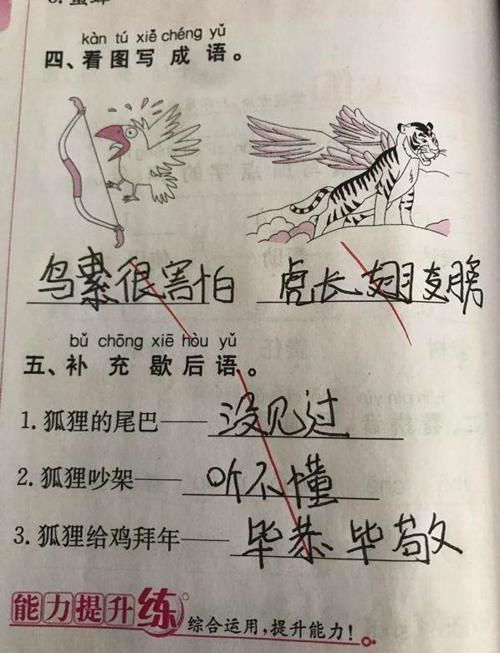 kàn tú xiě chéng yǔ
四、看图写成语。
鸟累很害怕 虎长翅膀
bǔ chōng xiē hòu yǔ
五、补充歇后语。
1. 狐狸的尾巴——没见过
2. 狐狸吵架——听不懂
3. 狐狸给鸡拜年——毕恭毕敬
能力提升练 综合运用，提升能力！